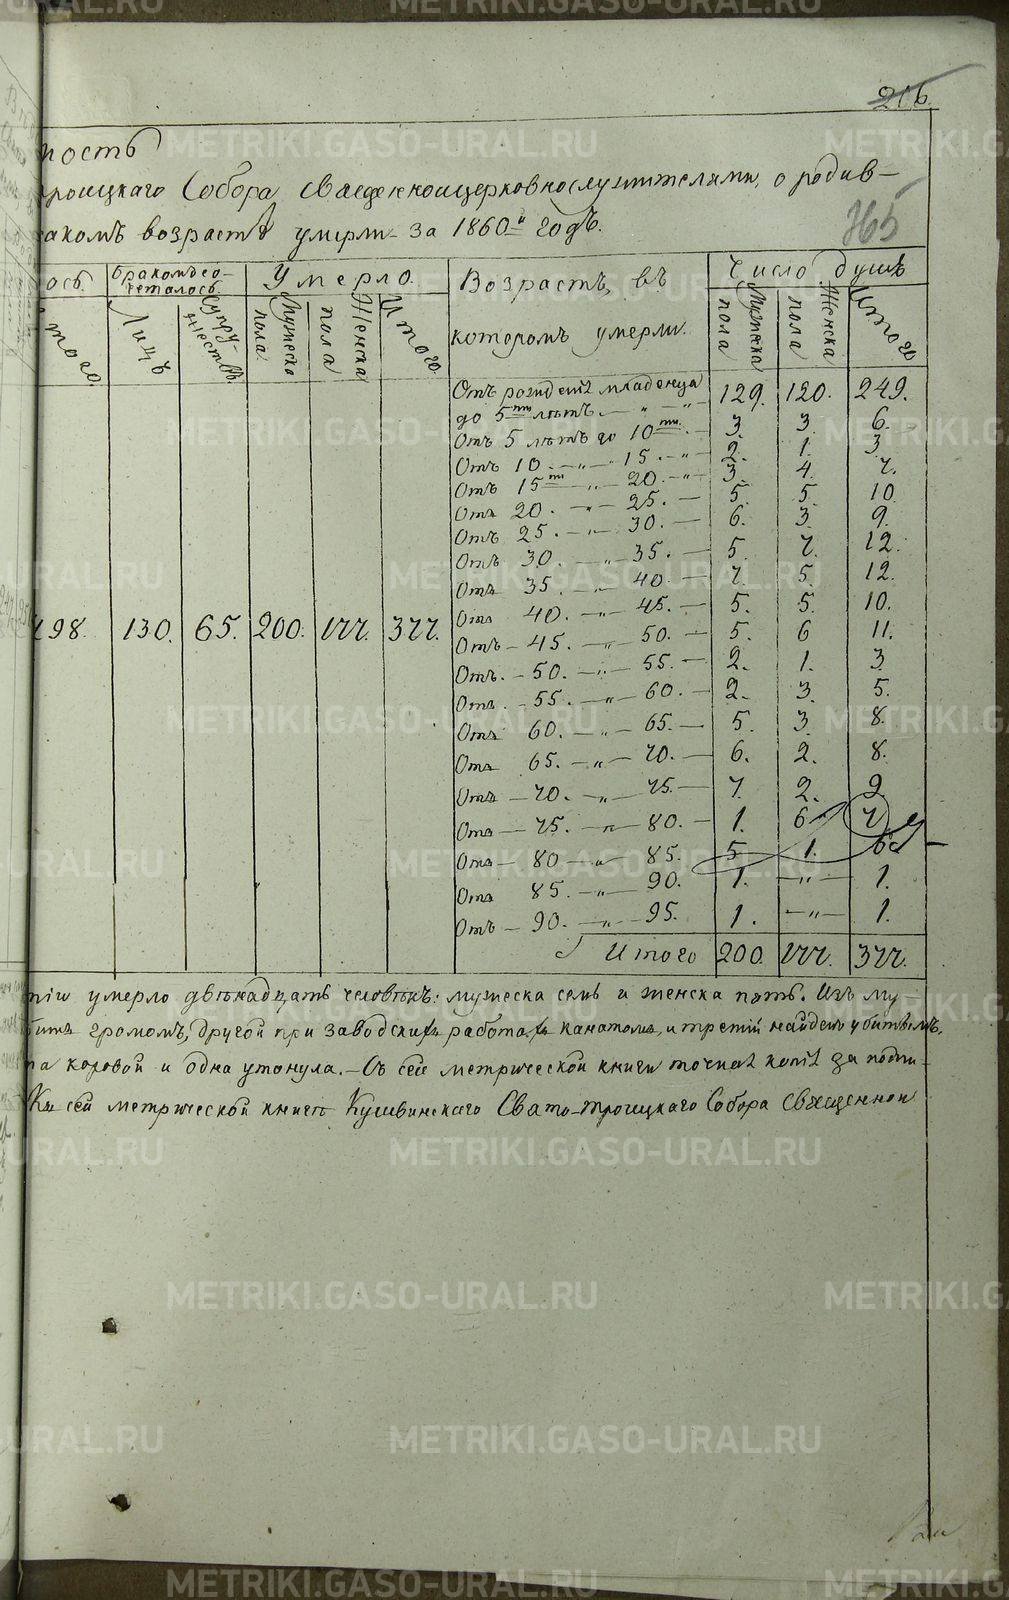 216.
ность
роицкаго Собора Священноцерковнослужителями, о родив-
акомъ возрастѣ умерли за 1860й годъ.
365
ось. Бракомъ со-четалось. Умерло. Возрастъ, въ которомъ умерли. Число душъ
того. Лицъ Супружествъ Мужеска пола Женска пола Итого. Мужеска пола Женска пола Итого
Отъ рожденія младенца
до 5ти лѣтъ. — " — 129. 120. 249.
Отъ 5 лѣтъ до 10ти. — 3. 3. 6.
Отъ 10. — " — 15. — " — 2. 1. 3.
Отъ 15ти — " — 20. — " — 3. 4. 7.
Отъ 20. — " — 25. — 5. 5. 10.
Отъ 25. — " — 30. — 6. 3. 9.
Отъ 30. — " — 35. — 5. 7. 12.
Отъ 35. — " — 40. — 7. 5. 12.
Отъ 40. — " — 45. — 5. 5. 10.
498. 130. 65. 200. 177. 377.
Отъ — 45. — " — 50. — 5. 6 11.
Отъ. — 50. — " — 55. — 2. 1. 3.
Отъ. — 55. — " — 60. — 2. 3. 5.
Отъ 60. — " — 65. — 5. 3. 8.
Отъ 65. — " — 70. — 6. 2. 8.
Отъ — 70. — " — 75. — 7. 2. 9.
Отъ — 75. — " — 80. — 1. 6 7
Отъ — 80 — " — 85. 5 1. 6
Отъ 85. — " — 90. 1. — " — 1.
Отъ — 90. — " — 95. 1. — " — 1.
Итого 200. 177. 377.
умерло двѣнадцать человѣкъ: мужеска семь и женска пять. Изъ му-
громомъ, другой при заводскихъ работахъ канатомъ, и третій найденъ убитымъ,
коровой и одна утонула. — Съ сей метрической книги точная копія за подпи-
Къ сей метрической книгѣ Кушвинскаго Свято-Троицкаго Собора Священной
METRIKI.GASO-URAL.RU